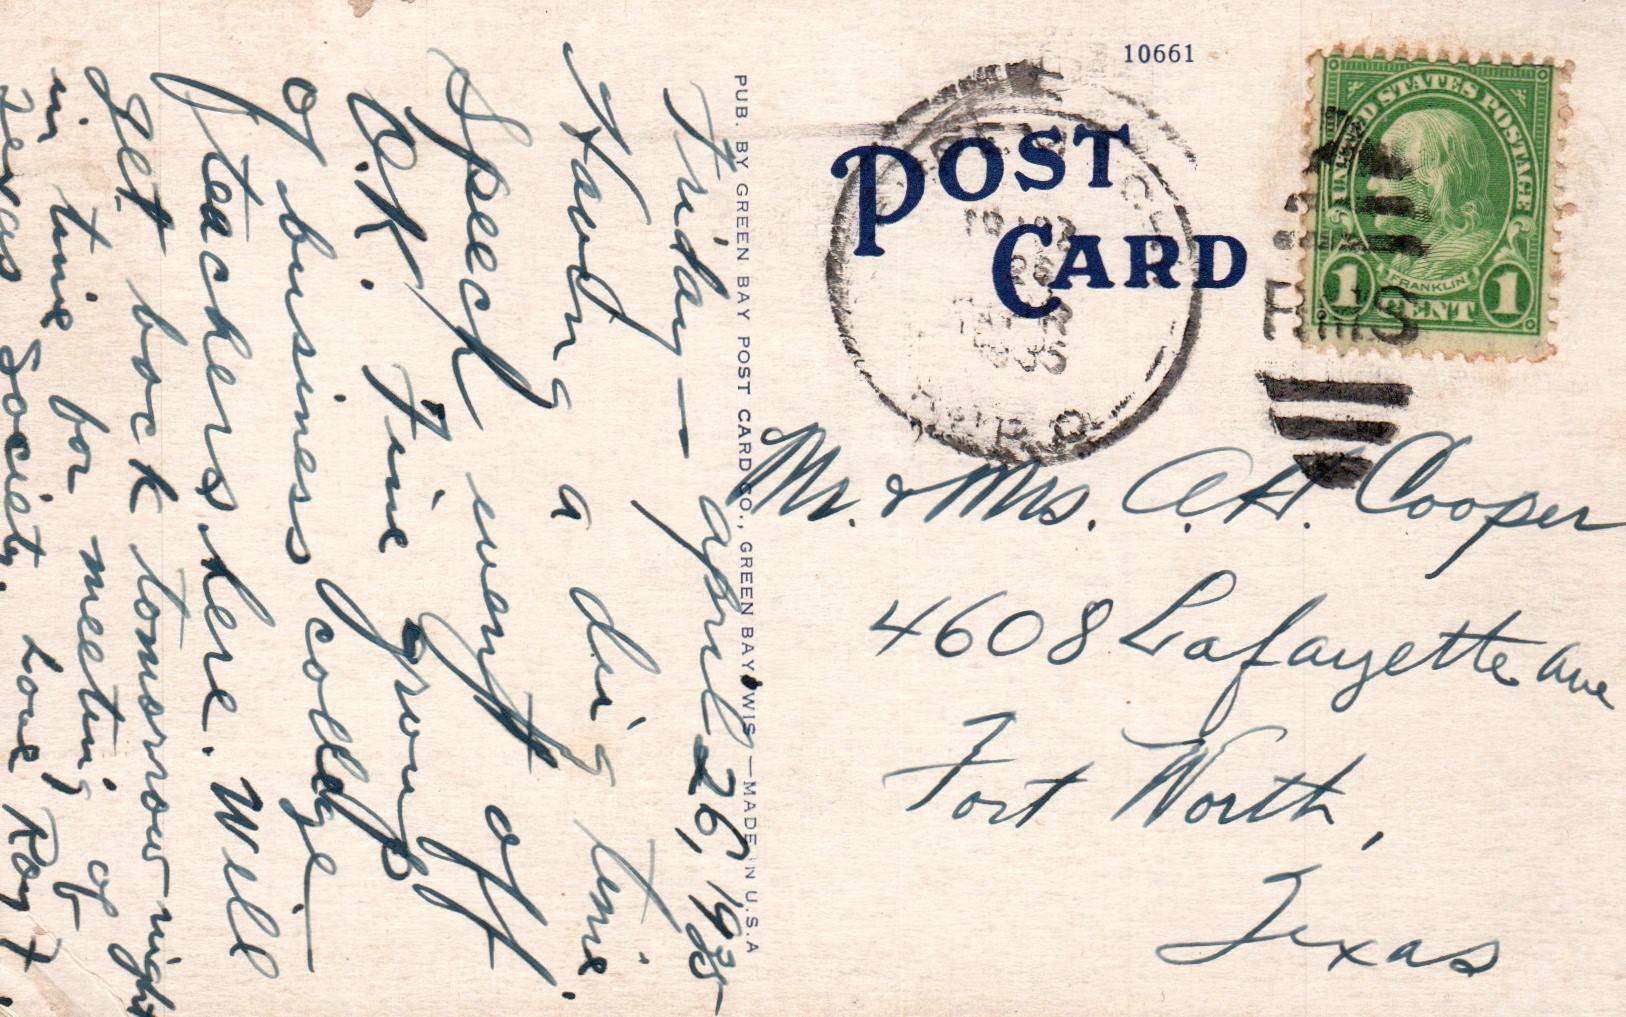 Friday — April 26, 1935
Having a big time.
Speech went off
O.K. Fine group
of business college
teachers here. Will
get back tomorrow night
in time for meeting of
Texas Society. Love Roy
PUB. BY GREEN BAY POST CARD CO., GREEN BAY, WIS.—MADE IN U.S.A
10661
POST
CARD
1935
R.P.O.
RMS
UNITED STATES POSTAGE
FRANKLIN
1 CENT 1
Mr. & Mrs. A.H. Cooper
4608 Lafayette Ave
Fort Worth,
Texas